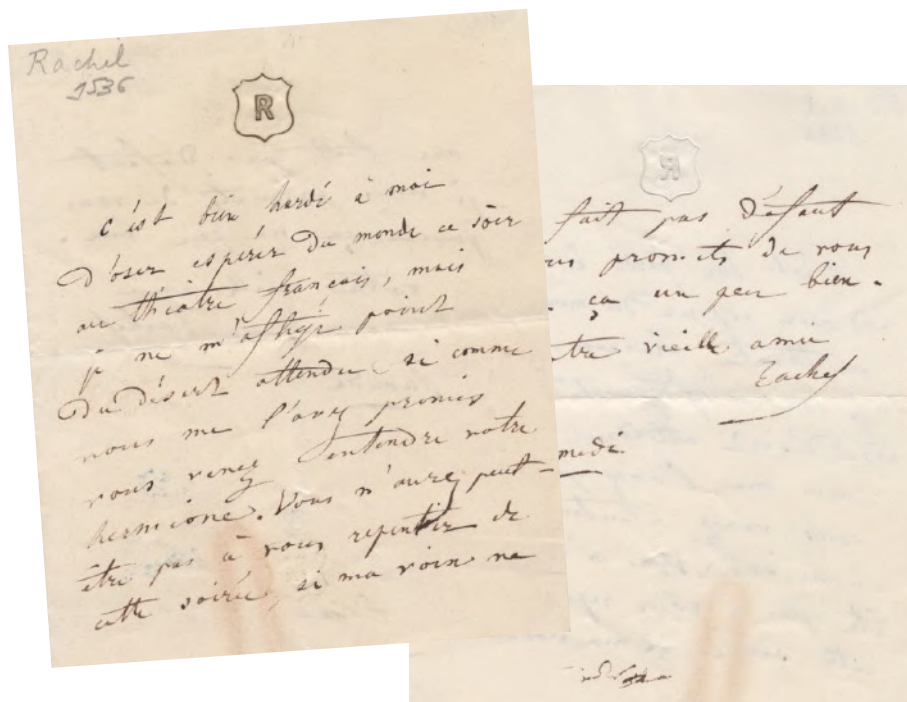 Rachel
1536
R
c'est bien hardi à moi
D'oser espérer Du monde ce soir
au théâtre français, mais
je ne m'aflige point
Du désert attendu, si comme
vous me l'avez promis
vous venez entendre votre
hermione. Vous n'aurez peut-
être pas à vous repentir de
cette soirée, si ma voix ne
R
fait pas Défaut
us promets de vous
ça un peu bien.
tre vieille amie
Rachel
medi